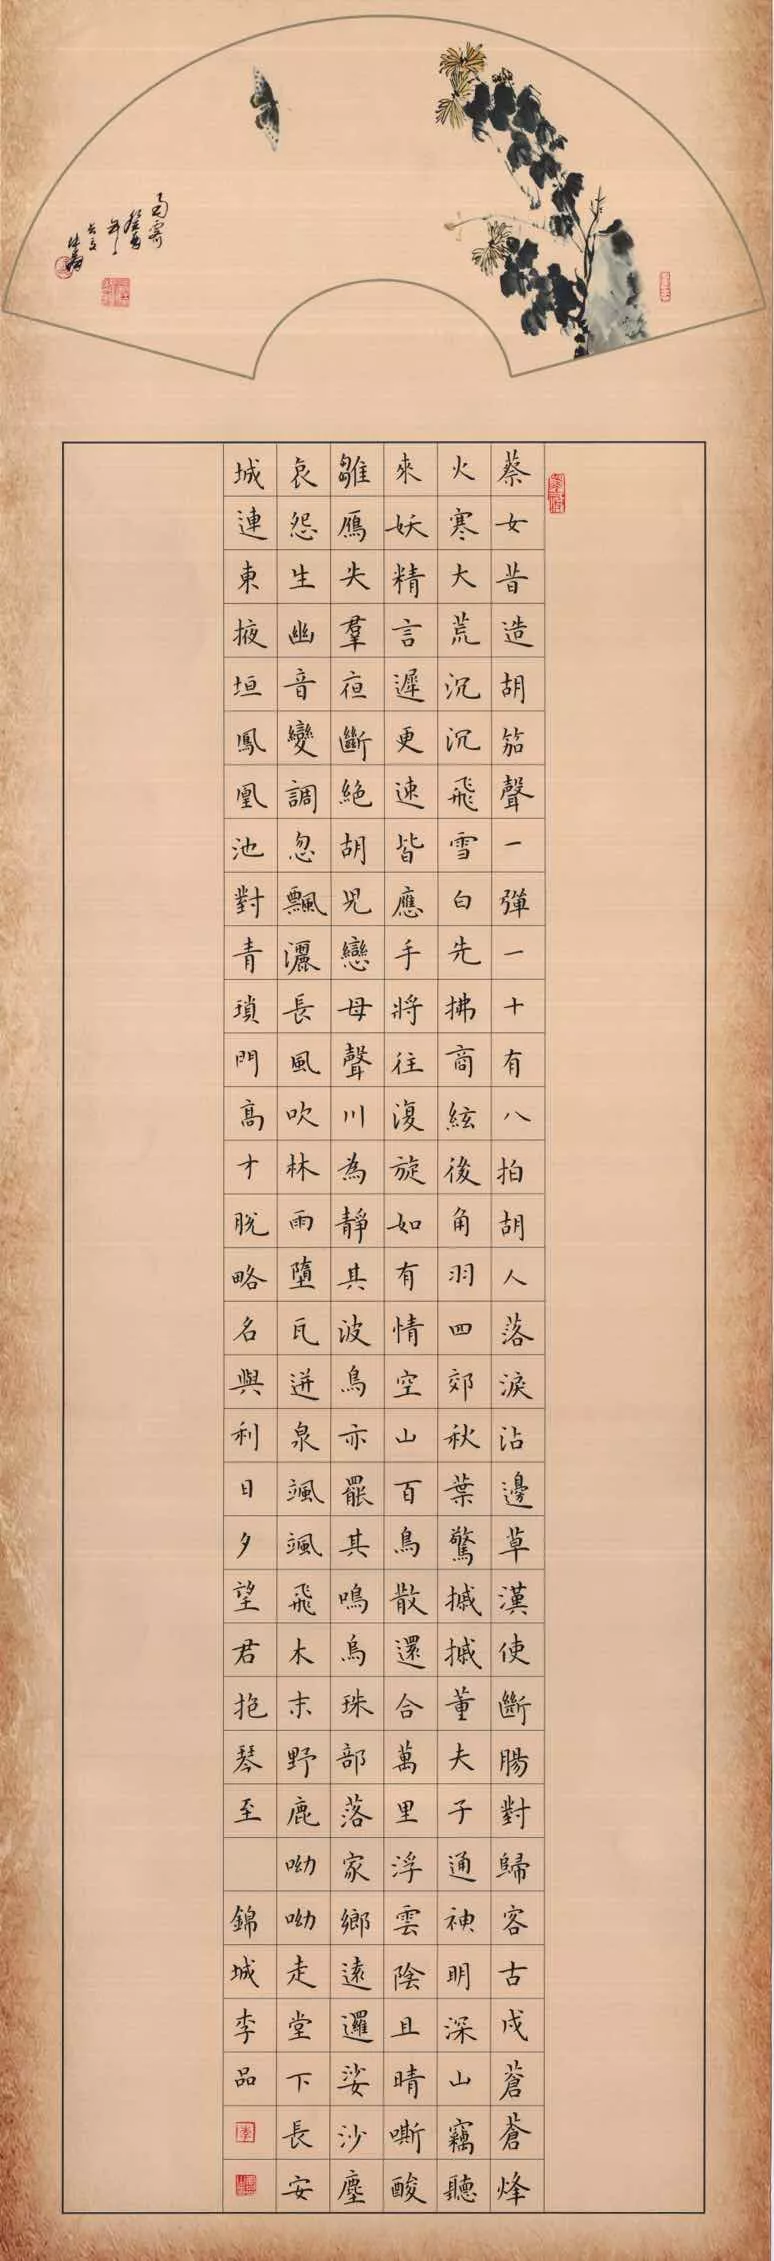 蔡女昔造胡笳聲一彈一十有八拍胡人落淚沾邊草漢使斷腸對歸客古戍蒼蒼烽
火寒大荒沉沉飛雪白先拂商絃後角羽四郊秋葉驚摵摵董夫子通神明深山竊聽
來妖精言遲更速皆應手將往復旋如有情空山百鳥散還合萬里浮雲陰且晴嘶酸
雛鴈失羣夜斷絕胡兒戀母聲川為靜其波鳥亦罷其鳴烏珠部落家鄉遠邏娑沙塵
哀怨生幽音變調忽飄灑長風吹林雨墮瓦迸泉颯颯飛木末野鹿呦呦走堂下長安
城連東掖垣鳳凰池對青瑣門高才脫略名與利日夕望君抱琴至 錦城李品